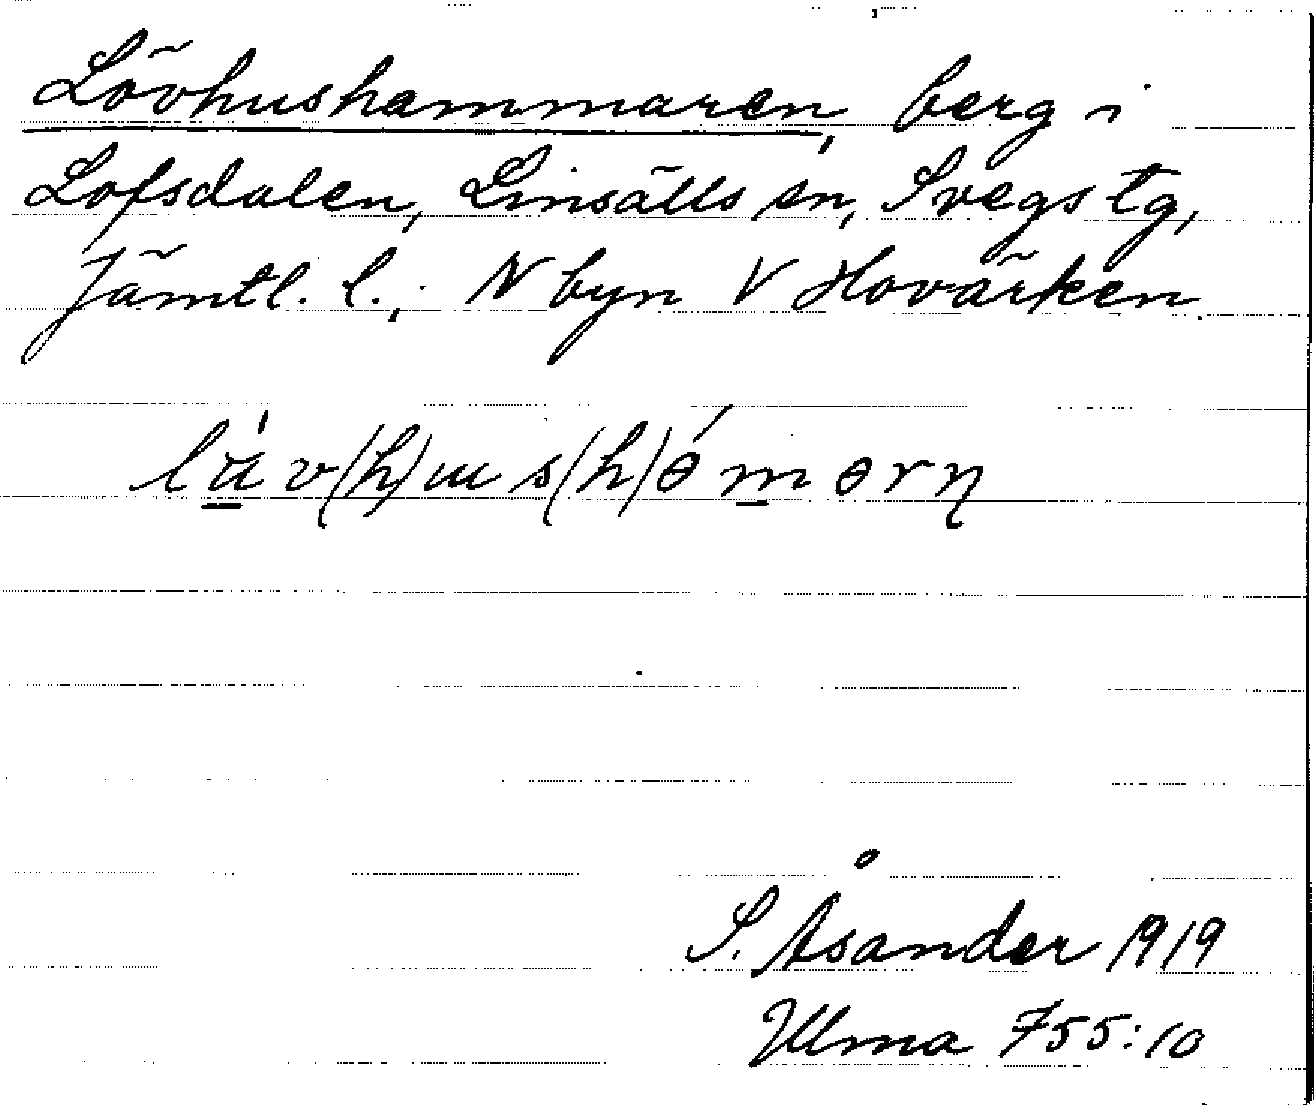 Lövhushammaren, berg i
Lofsdalen, Linsälls sn, Svegs tg,
Jämtl. l.; N byn V Hovärken.
S. Åsander 1919
Ulma 755:10